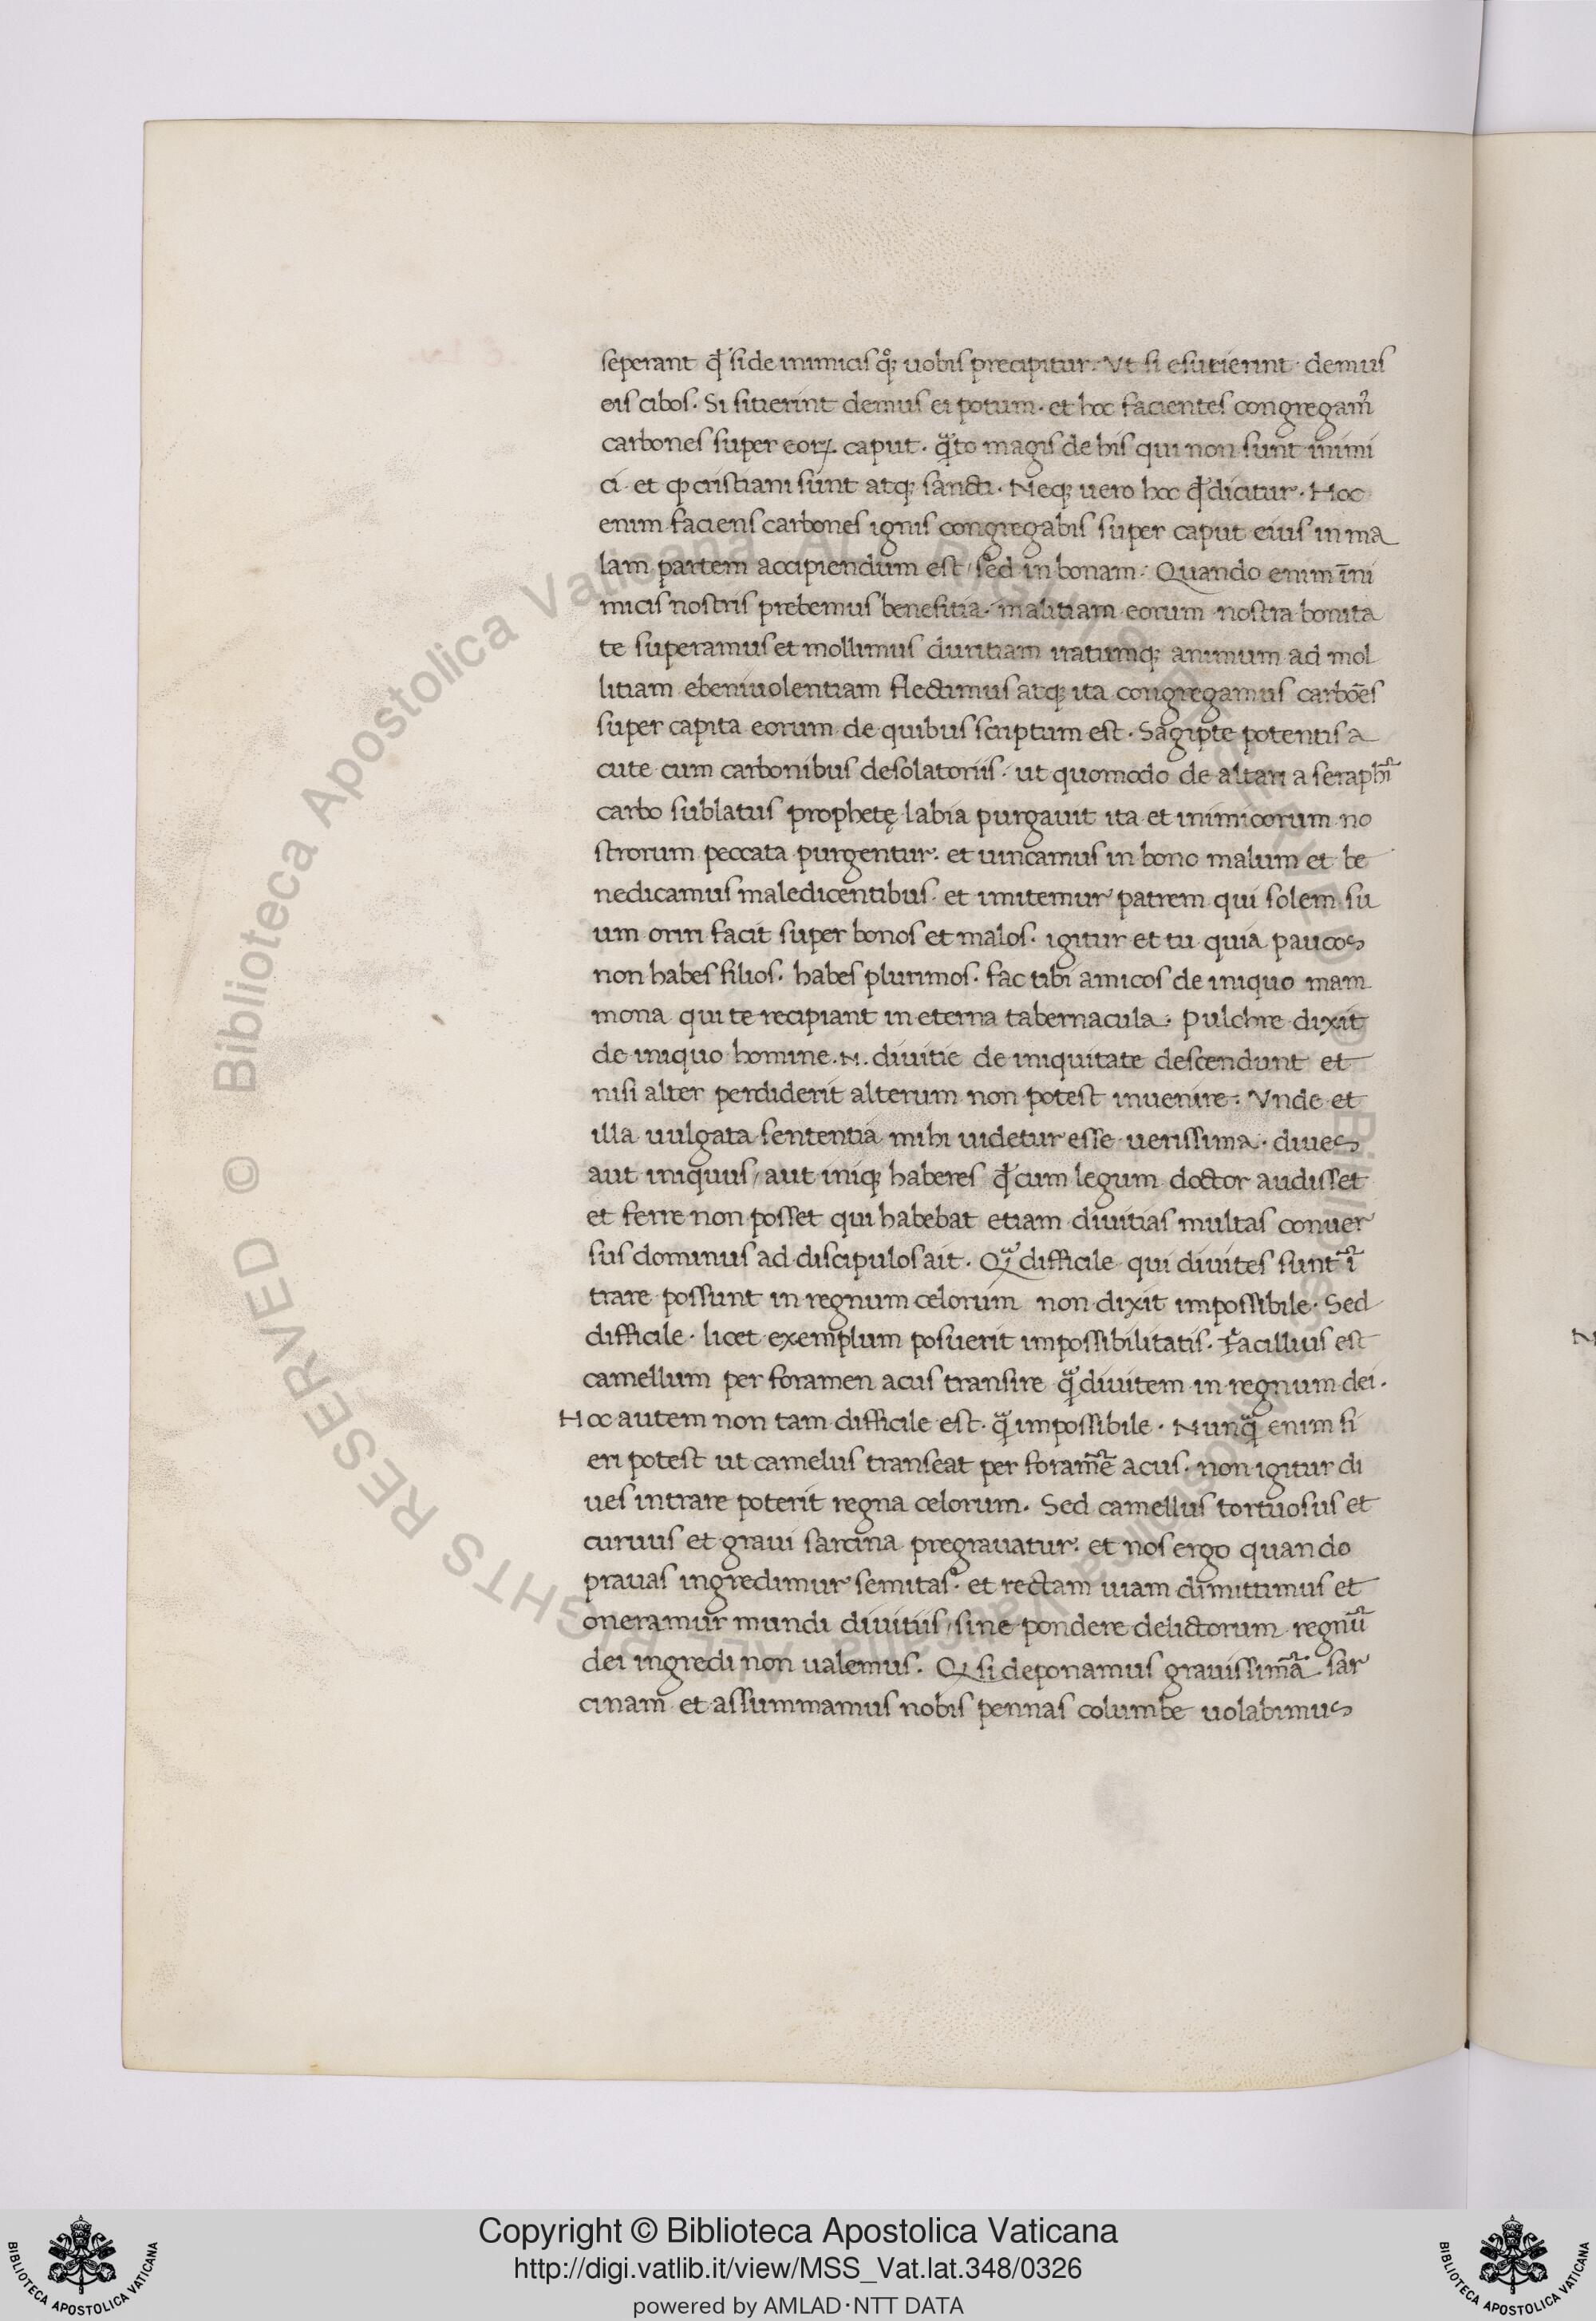 seperant qđ si de inimicis qꝫ uobis precipitur. Vt si esurierint demus
eis cibos. Si sitierint demus ei potum. et hoc facientes congregam᷒
carbones super eoꝝ caput. qͣto magis de his qui non sunt inimi
ci. et ꝙ cristiani sunt atqꝫ sancti. Neqꝫ uero hoc qđ dicitur. Hoc
enim faciens carbones ignis congregabis super caput eius in ma
lam partem accipiendum est / sed in bonam. Quando enim īni
micis nostris prebemus benefitia. malitiam eorum nostra bonita
te superamus et mollimus duritiam iratumqꝫ animum ad mol
litiam ebeniuolentiam flectimus atqꝫ ita congregamus carbōes
super capita eorum de quibus scriptum est. Sagipte potentis a
cute cum carbonibus desolatoriis. ut quomodo de altari a seraphī
carbo sublatus prophetę labia purgauit ita et inimicorum no
strorum peccata purgentur. et uincamus in bono malum et be
nedicamus maledicentibus. et imitemur patrem qui solem su
um oriri facit super bonos et malos. igitur et tu quia paucos
non habes filios. habes plurimos. fac tibi amicos de iniquo mam
mona qui te recipiant in eterna tabernacula. Pulchre dixit
de iniquo homine .N. diuitie de iniquitate descendunt et
nisi alter perdiderit alterum non potest inuenire. Vnde et
illa uulgata sententia mihi uidetur esse uerissima. diues
aut iniquus / aut iniqꝫ haberes qđ cum legum doctor audisset
et ferre non posset qui habebat etiam diuitias multas conuer
sus dominus ad discipulos ait. Qͣ difficile qui diuites sunt ī
trare possunt in regnum celorum non dixit impossibile. Sed
difficile. licet exemplum posuerit impossibilitatis. Facillius est
camellum per foramen acus transire qͣ diuitem in regnum dei.
Hoc autem non tam difficile est. qͣ impossibile. Nunqͣ enim fi
eri potest ut camelus transeat per foramē acus. non igitur di
ues intrare poterit regna celorum. Sed camellus tortuosus et
curuus et graui sarcina pregrauatur. et nos ergo quando
prauas ingredimur semitas. et rectam uiam dimittimus et
oneramur mundi diuitiis / sine pondere delictorum regnū
dei ingredi non ualemus. Q si deponamus grauissimā sar
cinam et assummamus nobis pennas columbe uolabimus
© Biblioteca Apostolica Vaticana ALL RIGHTS RESERVED
Copyright © Biblioteca Apostolica Vaticana
http://digi.vatlib.it/view/MSS_Vat.lat.348/0326
powered by AMLAD·NTT DATA
BIBLIOTECA APOSTOLICA VATICANA
BIBLIOTECA APOSTOLICA VATICANA